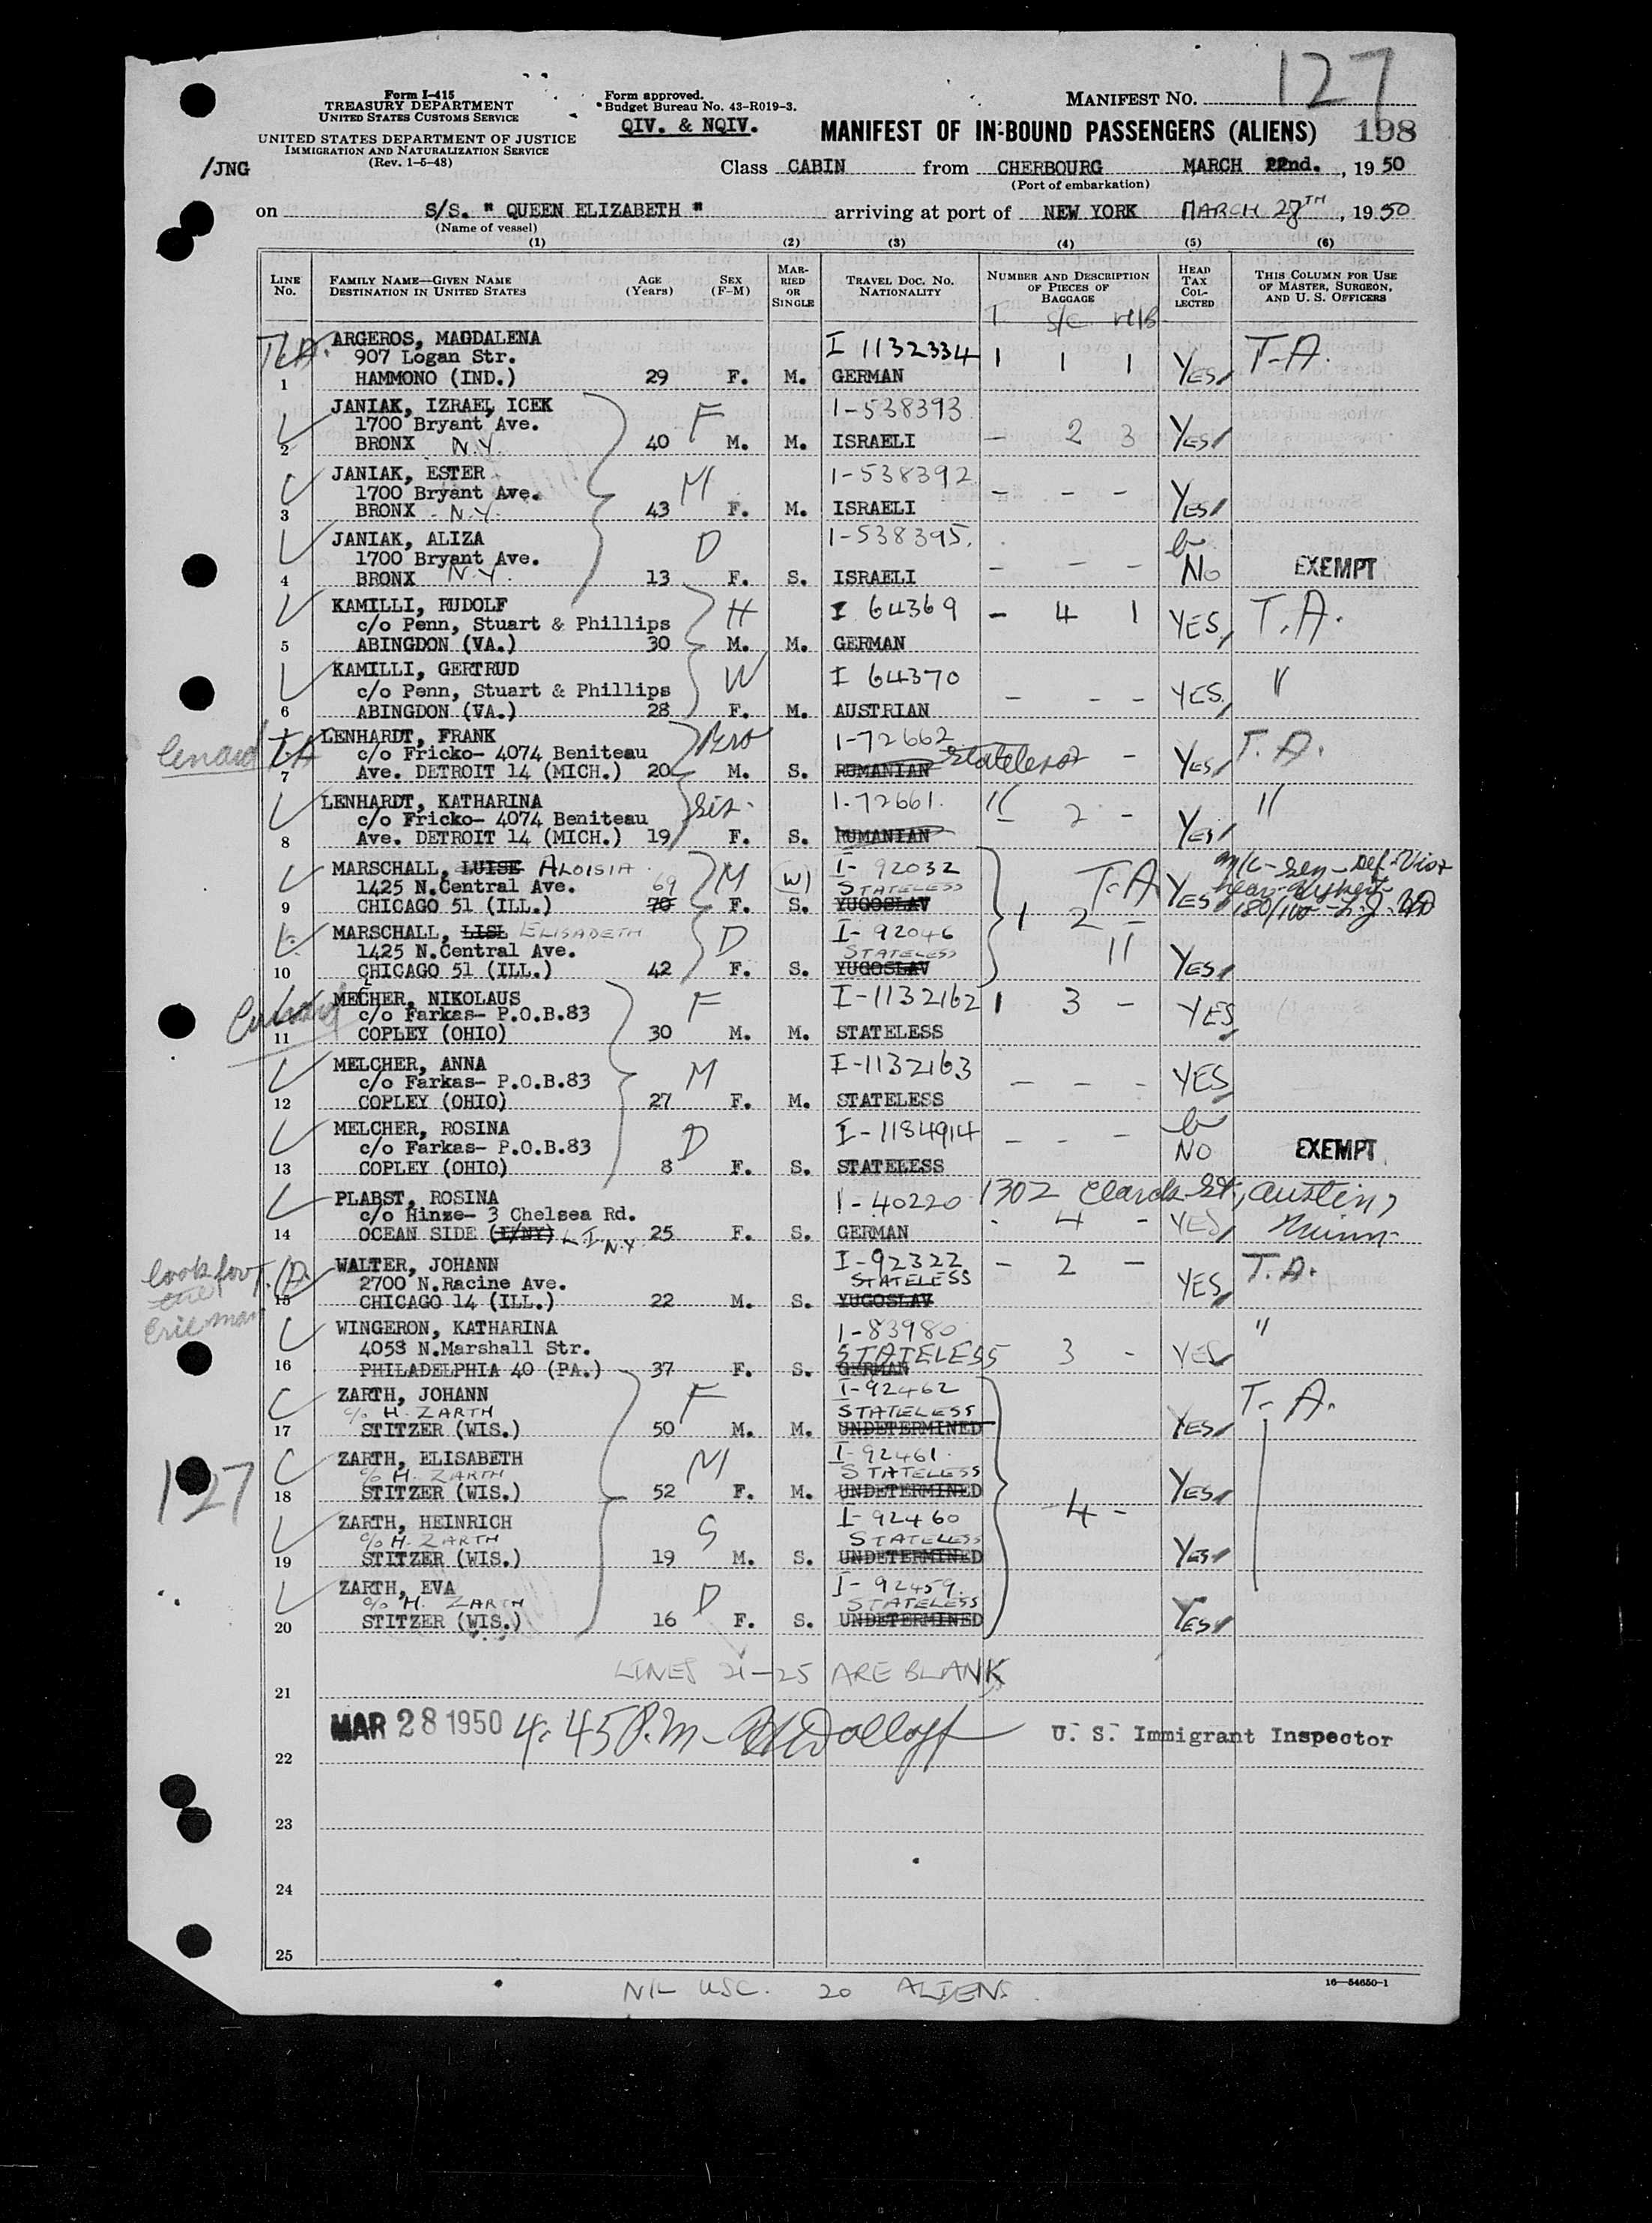 127
Form I-415
TREASURY DEPARTMENT
UNITED STATES CUSTOMS SERVICE
UNITED STATES DEPARTMENT OF JUSTICE
IMMIGRATION AND NATURALIZATION SERVICE
(Rev. 1-5-48)
Form approved.
Budget Bureau No. 43-R019-3.
QIV. & NQIV.
MANIFEST NO.
MANIFEST OF IN-BOUND PASSENGERS (ALIENS) 198
/JNG
Class CABIN from CHERBOURG MARCH 22nd. , 19 50
(Port of embarkation)
on S/S. " QUEEN ELIZABETH " arriving at port of NEW YORK MARCH 28TH , 19 50
(Name of vessel)
(1) (2) (3) (4) (5) (6)
LINE NO. FAMILY NAME—GIVEN NAME DESTINATION IN UNITED STATES AGE (Years) SEX (F-M) MARRIED OR SINGLE TRAVEL DOC. NO. NATIONALITY NUMBER AND DESCRIPTION OF PIECES OF BAGGAGE HEAD TAX COLLECTED THIS COLUMN FOR USE OF MASTER, SURGEON, AND U. S. OFFICERS
T S/C H/B
T.A. ARGEROS, MAGDALENA I 1132334 1 1 1 T-A.
907 Logan Str.
1 HAMMONO (IND.) 29 F. M. GERMAN YES
JANIAK, IZRAEL ICEK F I-538393
1700 Bryant Ave.
2 BRONX N.Y. 40 M. M. ISRAELI - 2 3 YES
JANIAK, ESTER M I-538392
1700 Bryant Ave.
3 BRONX - N.Y. 43 F. M. ISRAELI - - - YES
JANIAK, ALIZA D I-538395.
1700 Bryant Ave.
4 BRONX N.Y. 13 F. S. ISRAELI - - - No EXEMPT
KAMILLI, RUDOLF H I 64369 - 4 1 YES T.A.
c/o Penn, Stuart & Phillips
5 ABINGDON (VA.) 30 M. M. GERMAN
KAMILLI, GERTRUD W I 64370 "
c/o Penn, Stuart & Phillips - - - YES
6 ABINGDON (VA.) 28 F. M. AUSTRIAN
T.A LENHARDT, FRANK Bro I-72662 T.A.
c/o Fricko- 4074 Beniteau Stateless -
7 Ave. DETROIT 14 (MICH.) 20 M. S. RUMANIAN YES
LENHARDT, KATHARINA Sis. I-72661. " "
c/o Fricko- 4074 Beniteau 2 -
8 Ave. DETROIT 14 (MICH.) 19 F. S. RUMANIAN YES
MARSCHALL, LUISE ALOISIA M (W) I- 92032
1425 N.Central Ave. 69 STATELESS T-A
9 CHICAGO 51 (ILL.) 70 F. S. YUGOSLAV YES 180/100
MARSCHALL, LISL ELISABETH D I- 92046 1 2 -
1425 N.Central Ave. STATELESS "
10 CHICAGO 51 (ILL.) 42 F. S. YUGOSLAV YES
MECHER, NIKOLAUS F I-1132162 1 3 - YES
c/o Farkas- P.O.B.83
11 COPLEY (OHIO) 30 M. M. STATELESS
MELCHER, ANNA M I-1132163
c/o Farkas- P.O.B.83 - - - YES
12 COPLEY (OHIO) 27 F. M. STATELESS
MELCHER, ROSINA D I-1184914
c/o Farkas- P.O.B.83 - - - NO EXEMPT
13 COPLEY (OHIO) 8 F. S. STATELESS
PLABST, ROSINA I-40220 1302 Clark St, Austin,
c/o Hinze- 3 Chelsea Rd. 4 - YES Minn.
14 OCEAN SIDE (L/NY) L.I. N.Y 25 F. S. GERMAN
look for T.A. WALTER, JOHANN I-92322 - 2 - T.A.
2700 N.Racine Ave. STATELESS YES
15 CHICAGO 14 (ILL.) 22 M. S. YUGOSLAV
WINGERON, KATHARINA I-83980 "
4053 N.Marshall Str. STATELESS 3 - YES
16 PHILADELPHIA 40 (PA.) 37 F. S. GERMAN
ZARTH, JOHANN F I-92462 T-A.
c/o H. ZARTH STATELESS
17 STITZER (WIS.) 50 M. M. UNDETERMINED YES
ZARTH, ELISABETH M I-92461
c/o H. ZARTH STATELESS
127 18 STITZER (WIS.) 52 F. M. UNDETERMINED -4- YES
ZARTH, HEINRICH S I-92460
c/o H. ZARTH STATELESS
19 STITZER (WIS.) 19 M. S. UNDETERMINED YES
ZARTH, EVA D I-92459.
c/o H. ZARTH STATELESS
20 STITZER (WIS.) 16 F. S. UNDETERMINED YES
LINES 21-25 ARE BLANK
21
MAR 28 1950 4:45 P.M- U. S. Immigrant Inspector
22
23
24
25
NIL USC. 20 ALIENS.
16—54650-1